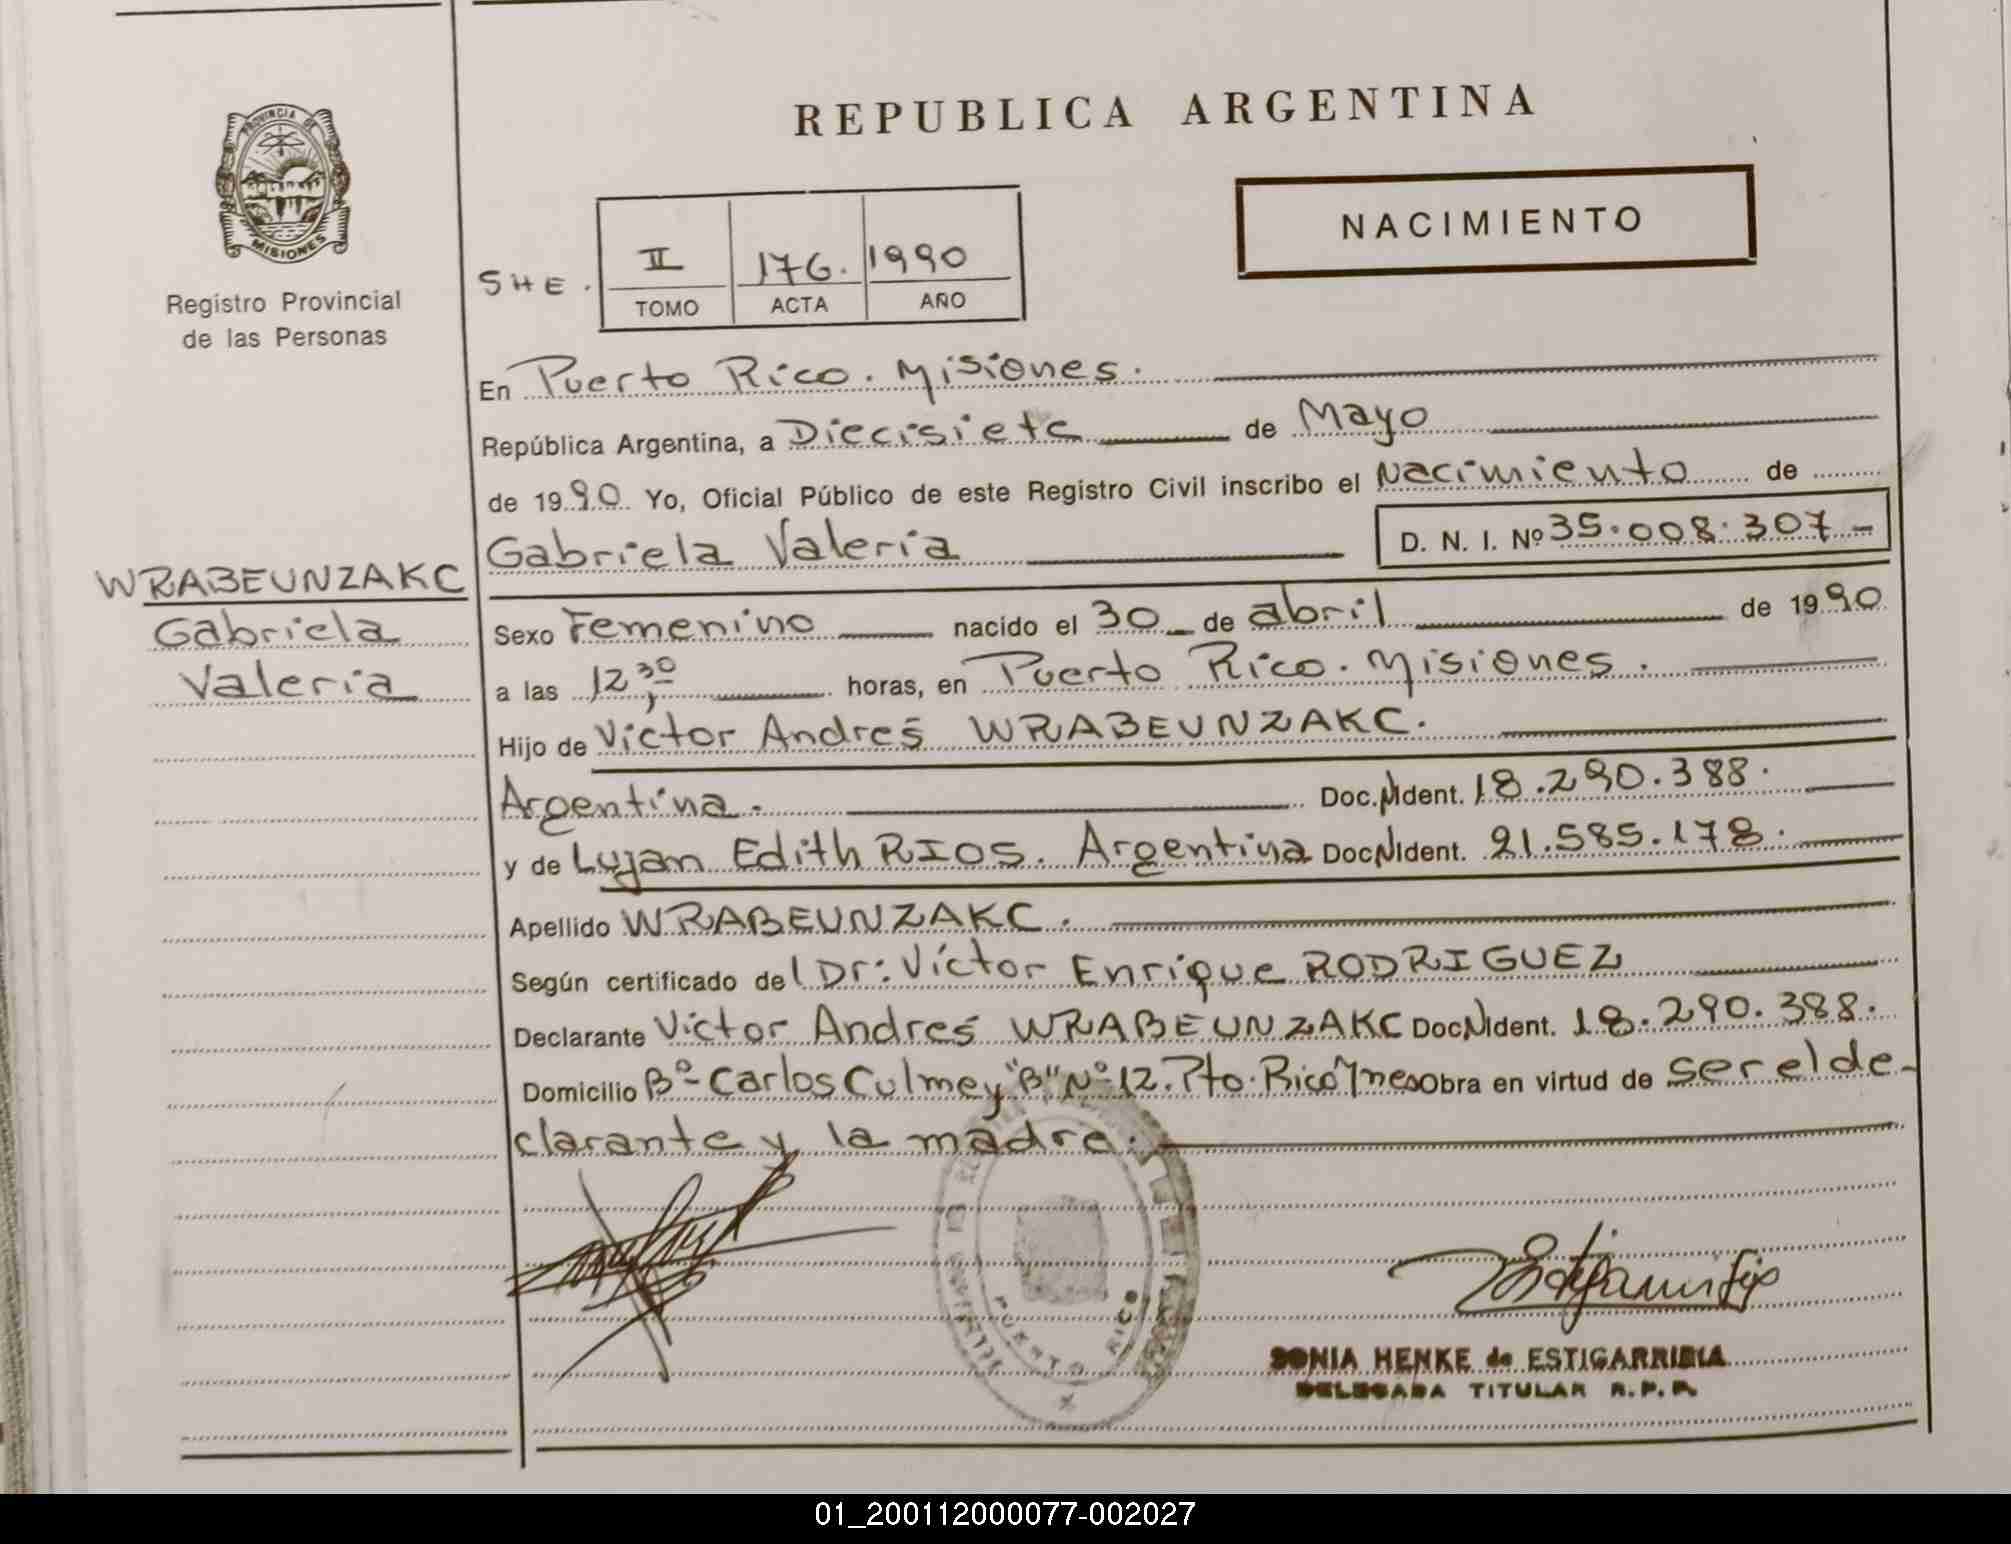 REPUBLICA ARGENTINA
PROVINCIA DE
MISIONES
Registro Provincial
de las Personas
NACIMIENTO
SHE. II 176. 1990
TOMO ACTA AÑO
En Puerto Rico. Misiones.
República Argentina, a Diecisiete de Mayo
de 1990 Yo, Oficial Público de este Registro Civil inscribo el Nacimiento de
Gabriela Valeria D. N. I. Nº 35.008.307-
WRABEUNZAKC
Gabriela
Valeria
Sexo Femenino nacido el 30 de abril de 1990
a las 12,30 horas, en Puerto Rico. Misiones.
Hijo de Victor Andrés WRABEUNZAKC.
Argentina. Doc. Ident. 18.290.388.
y de Lujan Edith RIOS. Argentina Doc. Ident. 21.585.178.
Apellido WRABEUNZAKC.
Según certificado del Dr: Víctor Enrique RODRIGUEZ
Declarante Victor Andrés WRABEUNZAKC Doc. Ident. 18.290.388.
Domicilio Bº- Carlos Culmey "B" Nº 12. Pto. Rico Mnes Obra en virtud de ser el de-
clarante y la madre.
PUERTO RICO
SONIA HENKE de ESTIGARRIBIA
DELEGADA TITULAR R.P.P.
01_200112000077-002027